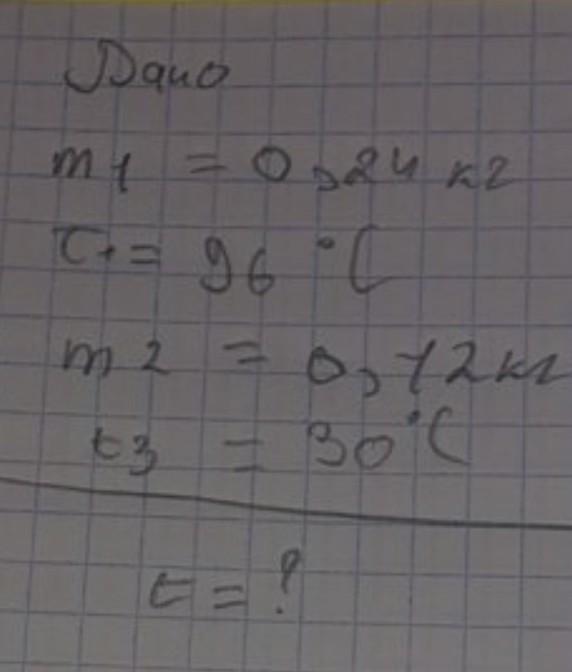 Дано
m1 = 0,24 кг
t1 = 96 °C
m2 = 0,12 кг
t3 = 30 °C
t = ?